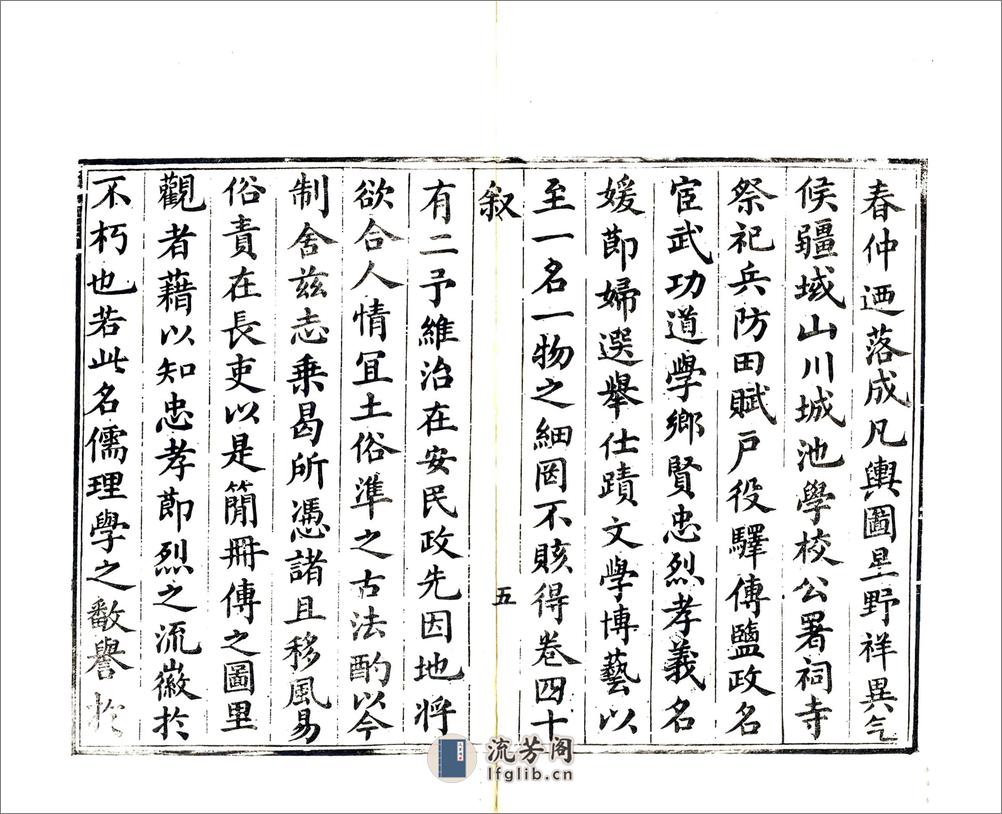 春仲迺落成凡輿圖星野祥異气
候疆域山川城池學校公署祠寺
祭祀兵防田賦戶役驛傳鹽政名
宦武功道學鄉賢忠烈孝義名
媛節婦選舉仕蹟文學博藝以
至一名一物之細罔不賅得卷四十
叙
五
有二予維治在安民政先因地將
欲合人情冝土俗準之古法酌以今
制舍兹志乗曷所憑諸且移風易
俗責在長吏以是簡冊傳之圖里
觀者藉以知忠孝節烈之流徽於
不朽也若此名儒理學之㪤譽於
流芳阁
lfglib.cn